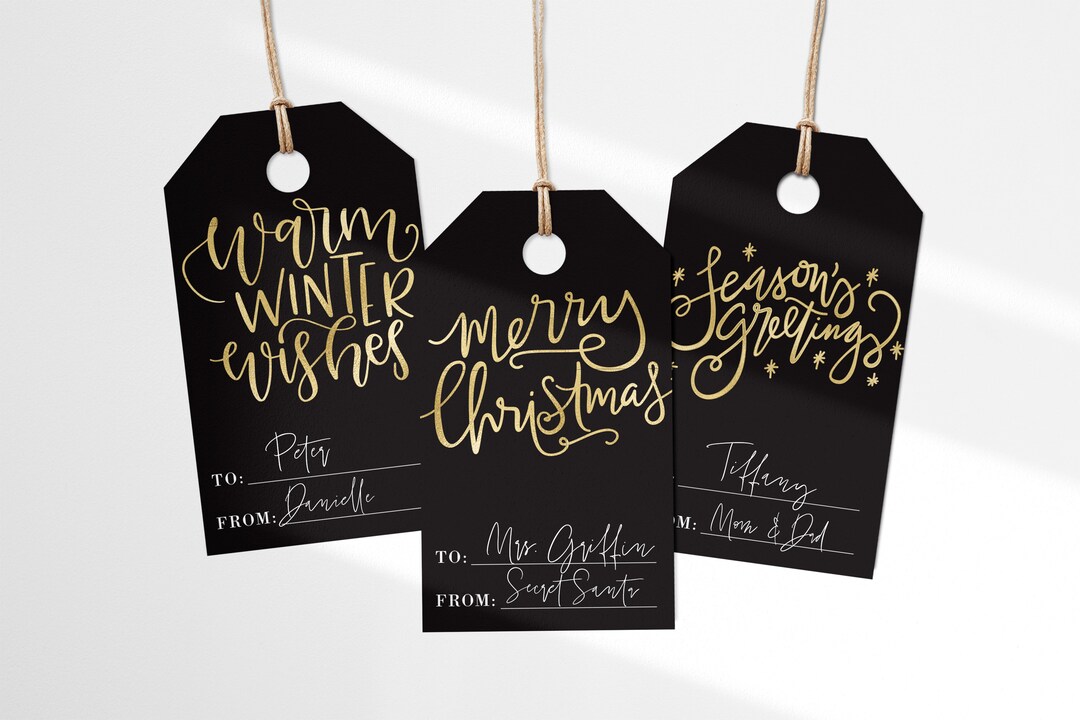 warm
WINTER
wishes
TO: Peter
FROM: Danielle
merry
Christmas
TO: Mrs. Griffin
FROM: Secret Santa
Season's
Greetings
Tiffany
M: Mom & Dad